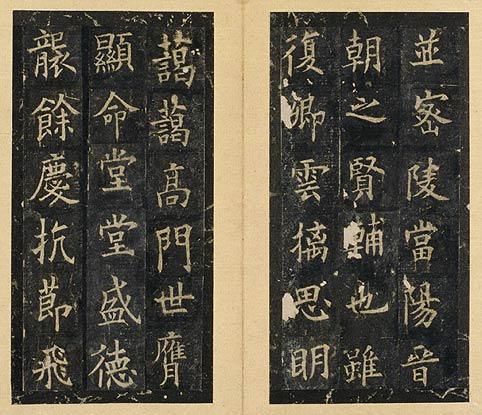 並宻陵當陽晉
朝之賢輔也雖
復卿雲摛思眀
藹藹高門世膺
顯命堂堂盛德
襲餘慶抗節飛